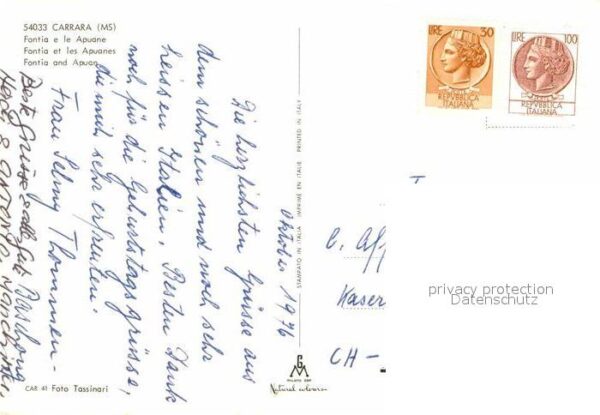 54033 CARRARA (MS)
Fontia e le Apuane
Fontia et les Apuanes
Fontia and Apuan
Oktober 1976
Die herzlichsten Grüsse aus
dem schönen und noch sehr
heissen Italien. Besten Dank
noch für die Geburtstagsgrüsse,
die mich sehr erfreuten.
Frau Selmy Thommen-
Beste Grüsse
CAR 41 Foto Tassinari
STAMPATO IN ITALIA IMPRIMÉ EN ITALIE PRINTED IN ITALY
GM
MILANO
Natural colours
LIRE 50
REPVBBLICA
ITALIANA
LIRE 100
REPVBBLICA
ITALIANA
C. Aff
Kaser
CH -
privacy protection
Datenschutz